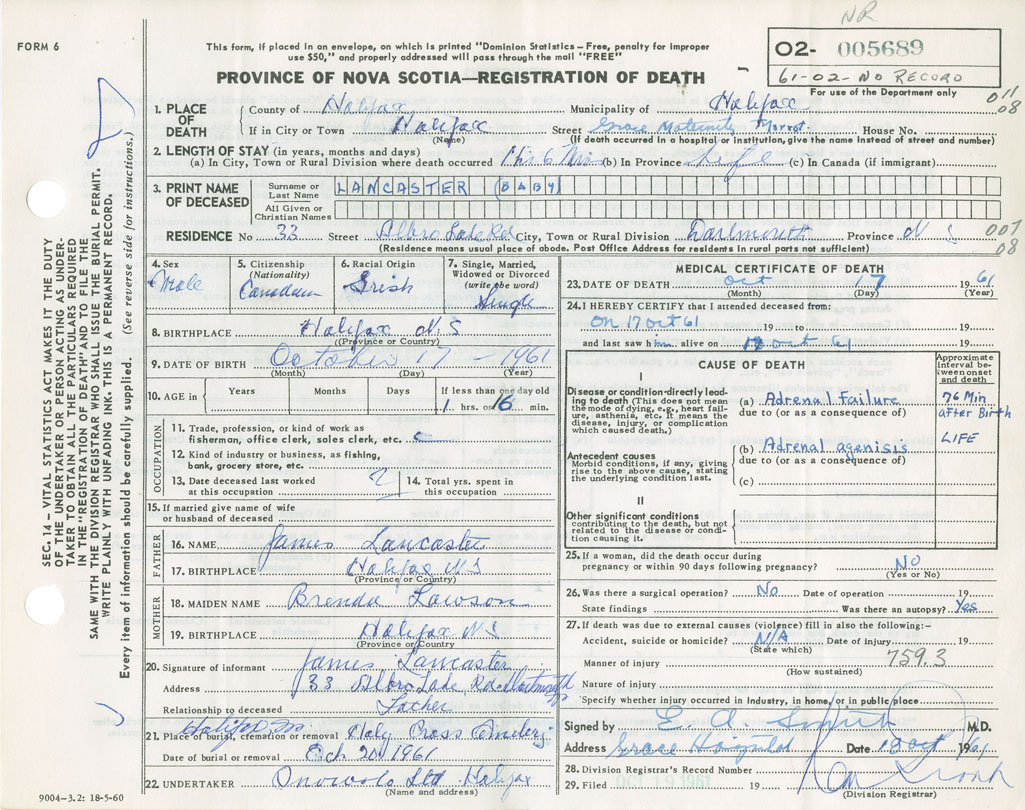 NR
FORM 6
This form, if placed in an envelope, on which is printed "Dominion Statistics—Free, penalty for improper
use $50," and properly addressed will pass through the mail "FREE"
PROVINCE OF NOVA SCOTIA—REGISTRATION OF DEATH
02- 005689
61-02-NO RECORD
For use of the Department only
011
08
1. PLACE OF DEATH
County of Halifax Municipality of Halifax
If in City or Town Halifax Street Grace Maternity House No.
(Name) (If death occurred in a hospital or institution, give the name instead of street and number)
2. LENGTH OF STAY (in years, months and days)
(a) In City, Town or Rural Division where death occurred 1 hr 6 Min (b) In Province Life (c) In Canada (if immigrant)
3. PRINT NAME OF DECEASED
Surname or Last Name LANCASTER (BABY)
All Given or Christian Names
RESIDENCE No 33 Street Albro Lake Rd City, Town or Rural Division Dartmouth Province N S
(Residence means usual place of abode. Post Office Address for residents in rural parts not sufficient)
007
08
4. Sex Male
5. Citizenship (Nationality) Canadian
6. Racial Origin Irish
7. Single, Married, Widowed or Divorced (write the word) Single
8. BIRTHPLACE Halifax N.S
(Province or Country)
9. DATE OF BIRTH October 17 - 1961
(Month) (Day) (Year)
10. AGE in Years Months Days If less than one day old
1 hrs. or 16 min.
OCCUPATION
11. Trade, profession, or kind of work as
fisherman, office clerk, sales clerk, etc.
12. Kind of industry or business, as fishing,
bank, grocery store, etc.
13. Date deceased last worked
at this occupation
14. Total yrs. spent in
this occupation
15. If married give name of wife
or husband of deceased
FATHER
16. NAME James Lancaster
17. BIRTHPLACE Halifax N S
(Province or Country)
MOTHER
18. MAIDEN NAME Brenda Lawson
19. BIRTHPLACE Halifax N S
(Province or Country)
20. Signature of informant James Lancaster
Address 33 Albro Lake Rd. Dartmouth
Relationship to deceased Father
Halifax
21. Place of burial, cremation or removal Holy Cross Cemetery
Date of burial or removal Oct 20 1961
22. UNDERTAKER Ltd Halifax
(Name and address)
9004—3.2: 18-5-60
MEDICAL CERTIFICATE OF DEATH
23. DATE OF DEATH Oct 17 1961
(Month) (Day) (Year)
24. I HEREBY CERTIFY that I attended deceased from:
On 17 oct 61 19 to 19
and last saw him alive on 17 oct 61 19
CAUSE OF DEATH
Approximate interval between onset and death
I
Disease or condition directly leading to death (This does not mean the mode of dying, e.g., heart failure, asthenia, etc. It means the disease, injury, or complication which caused death.)
(a) Adrenal Failure 76 Min after Birth
due to (or as a consequence of)
Antecedent causes
Morbid conditions, if any, giving rise to the above cause, stating the underlying condition last.
(b) Adrenal agenisis LIFE
due to (or as a consequence of)
(c)
II
Other significant conditions
contributing to the death, but not related to the disease or condition causing it.
25. If a woman, did the death occur during
pregnancy or within 90 days following pregnancy? No
(Yes or No)
26. Was there a surgical operation? No Date of operation 19
State findings Was there an autopsy? Yes
27. If death was due to external causes (violence) fill in also the following:—
Accident, suicide or homicide? N/A Date of injury 19
(State which)
759.3
Manner of injury
(How sustained)
Nature of injury
Specify whether injury occurred in Industry, in home, or in public place
Signed by E. A. Smith M.D.
Address Grace Hospital Date 18 Oct 1961
28. Division Registrar's Record Number
29. Filed OCT 19 1961 19
(Division Registrar)
SEC. 14 — VITAL STATISTICS ACT MAKES IT THE DUTY
OF THE UNDERTAKER OR PERSON ACTING AS UNDER-
TAKER TO OBTAIN ALL THE PARTICULARS REQUIRED
IN THE "REGISTRATION OF DEATH" AND TO FILE THE
SAME WITH THE DIVISION REGISTRAR WHO SHALL ISSUE THE BURIAL PERMIT.
WRITE PLAINLY WITH UNFADING INK. THIS IS A PERMANENT RECORD.
Every item of information should be carefully supplied. (See reverse side for instructions.)